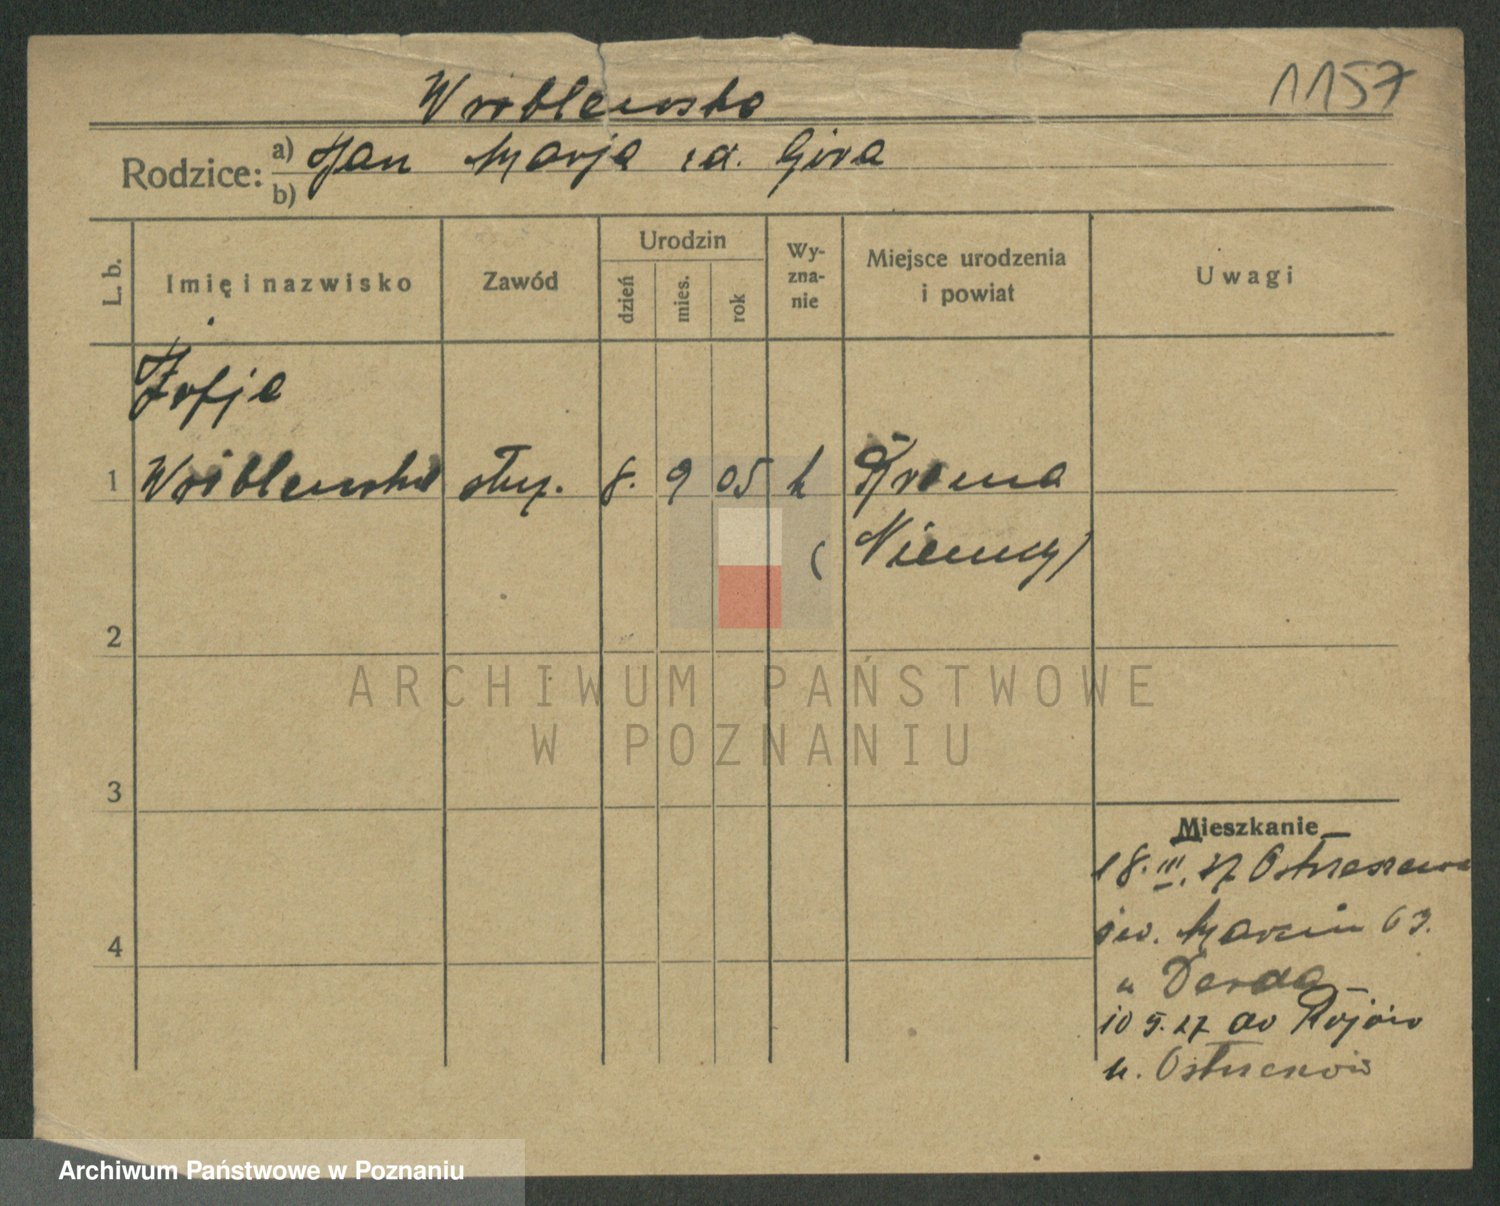 Wróblewska
1157
Rodzice: a) Jan Marja zd. Góra
b)
L. b. Imię i nazwisko Zawód Urodzin dzień mies. rok Wy-zna-nie Miejsce urodzenia i powiat Uwagi
Zofja
1 Wróblewska służ. 8. 9 05 k
(Niemcy)
2
3
4
Mieszkanie
18. III. 27
św. Marcin 63.
u Derda
10 5. 27 do Rojów
ARCHIWUM PAŃSTWOWE
W POZNANIU
Archiwum Państwowe w Poznaniu